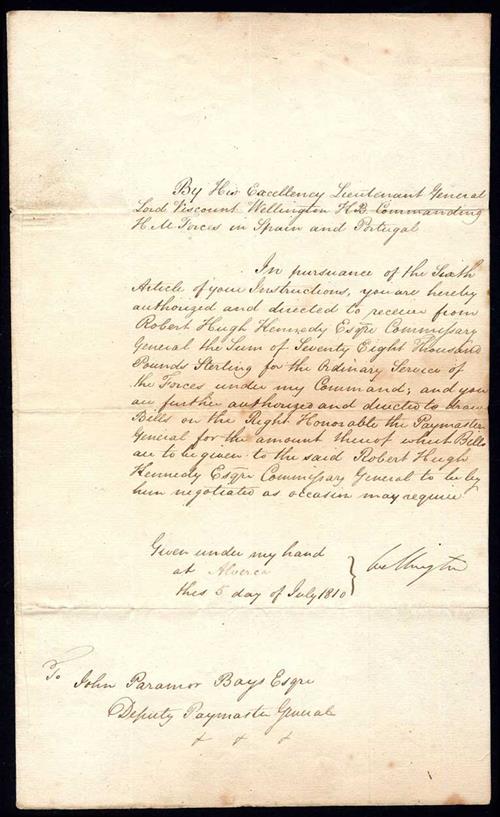 By His Excellency Lieutenant General
Lord Viscount Wellington K.B. Commanding
H. M. Forces in Spain and Portugal
In pursuance of the Sixth
Article of your Instructions, you are hereby
authorized and directed to receive from
Robert Hugh Kennedy Esqre Commissary
General the Sum of Seventy Eight Thousand
Pounds Sterling for the Ordinary Service of
the Forces under my Command; and you
are further authorized and directed to draw
Bills on the Right Honorable the Paymaster
General for the amount thereof which Bills
are to be given to the said Robert Hugh
Kennedy Esqre Commissary General to be by
him negotiated as occasion may require
Given under my hand
at Alverca
this 5 day of July 1810
Wellington
To John Paramor Bays Esqre
Deputy Paymaster General